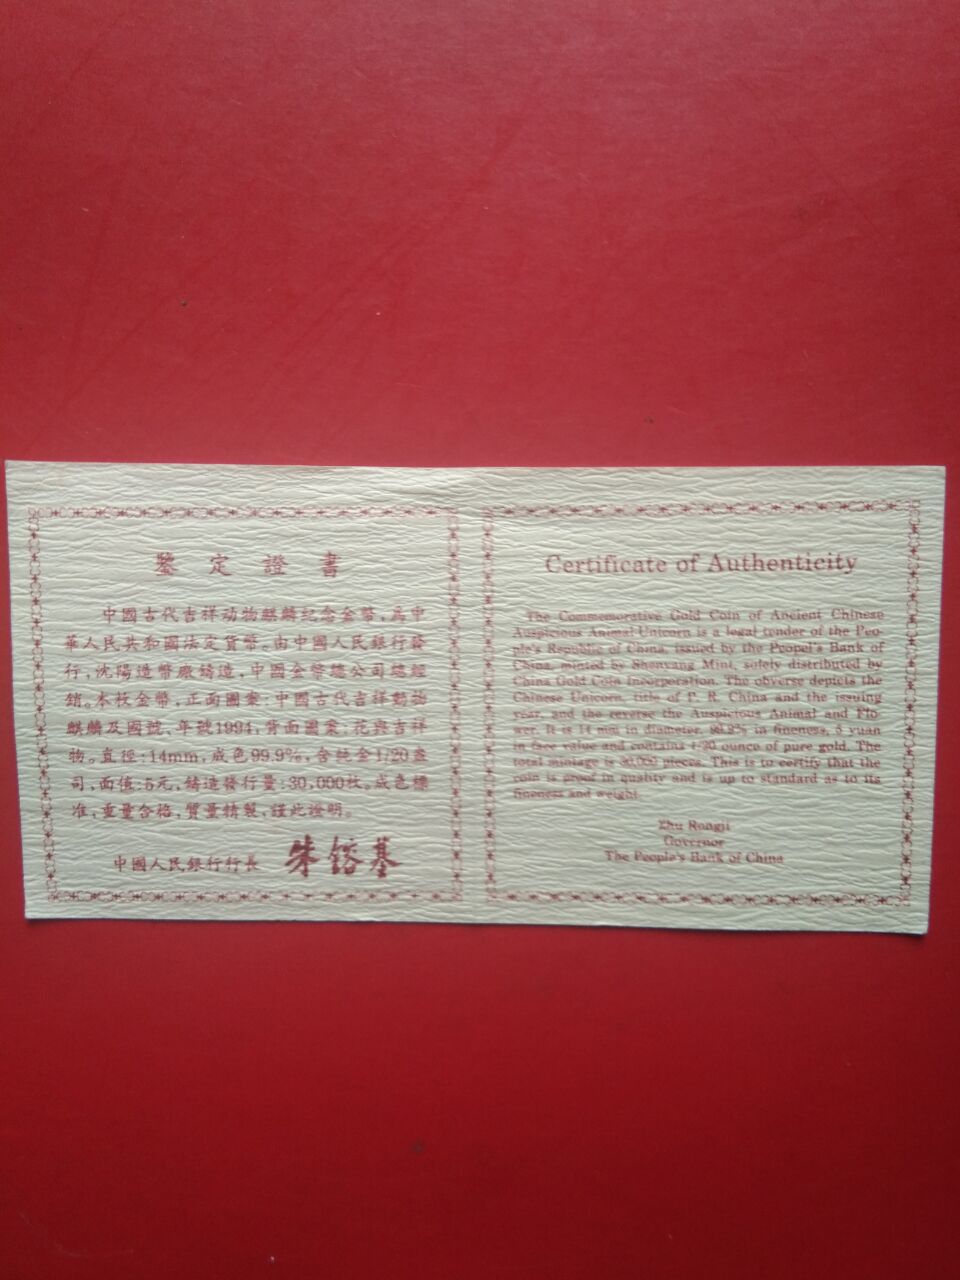 鑒定證書
中國古代吉祥动物麒麟纪念金幣，爲中
華人民共和國法定貨幣。由中國人民銀行發
行，沈陽造幣廠鑄造，中國金幣總公司總經
銷。本枚金幣，正面圖案：中國古代吉祥動物
麒麟及國號、年號1994，背面圖案：花與吉祥
物。直徑：14mm，成色99.9%，含純金1/20盎
司，面值：5元，鑄造發行量：30,000枚。成色標
准，重量合格，質量精製，謹此證明。
中國人民銀行行長 朱鎔基
Certificate of Authenticity
The Commemorative Gold Coin of Ancient Chinese
Auspicious Animal Unicorn is a legal tender of the Peo-
ple's Republic of China, issued by the Peopel's Bank of
China, minted by Shenyang Mint, solely distributed by
China Gold Coin Incorporation. The obverse depicts the
Chinese Unicorn, title of P. R. China and the issuing
year, and the reverse the Auspicious Animal and Flo-
wer. It is 14 mm in diameter, 99.9% in fineness, 5 yuan
in face value and contains 1/20 ounce of pure gold. The
total mintage is 30,000 pieces. This is to certify that the
coin is proof in quality and is up to standard as to its
fineness and weight.
Zhu Rongji
Governor
The People's Bank of China